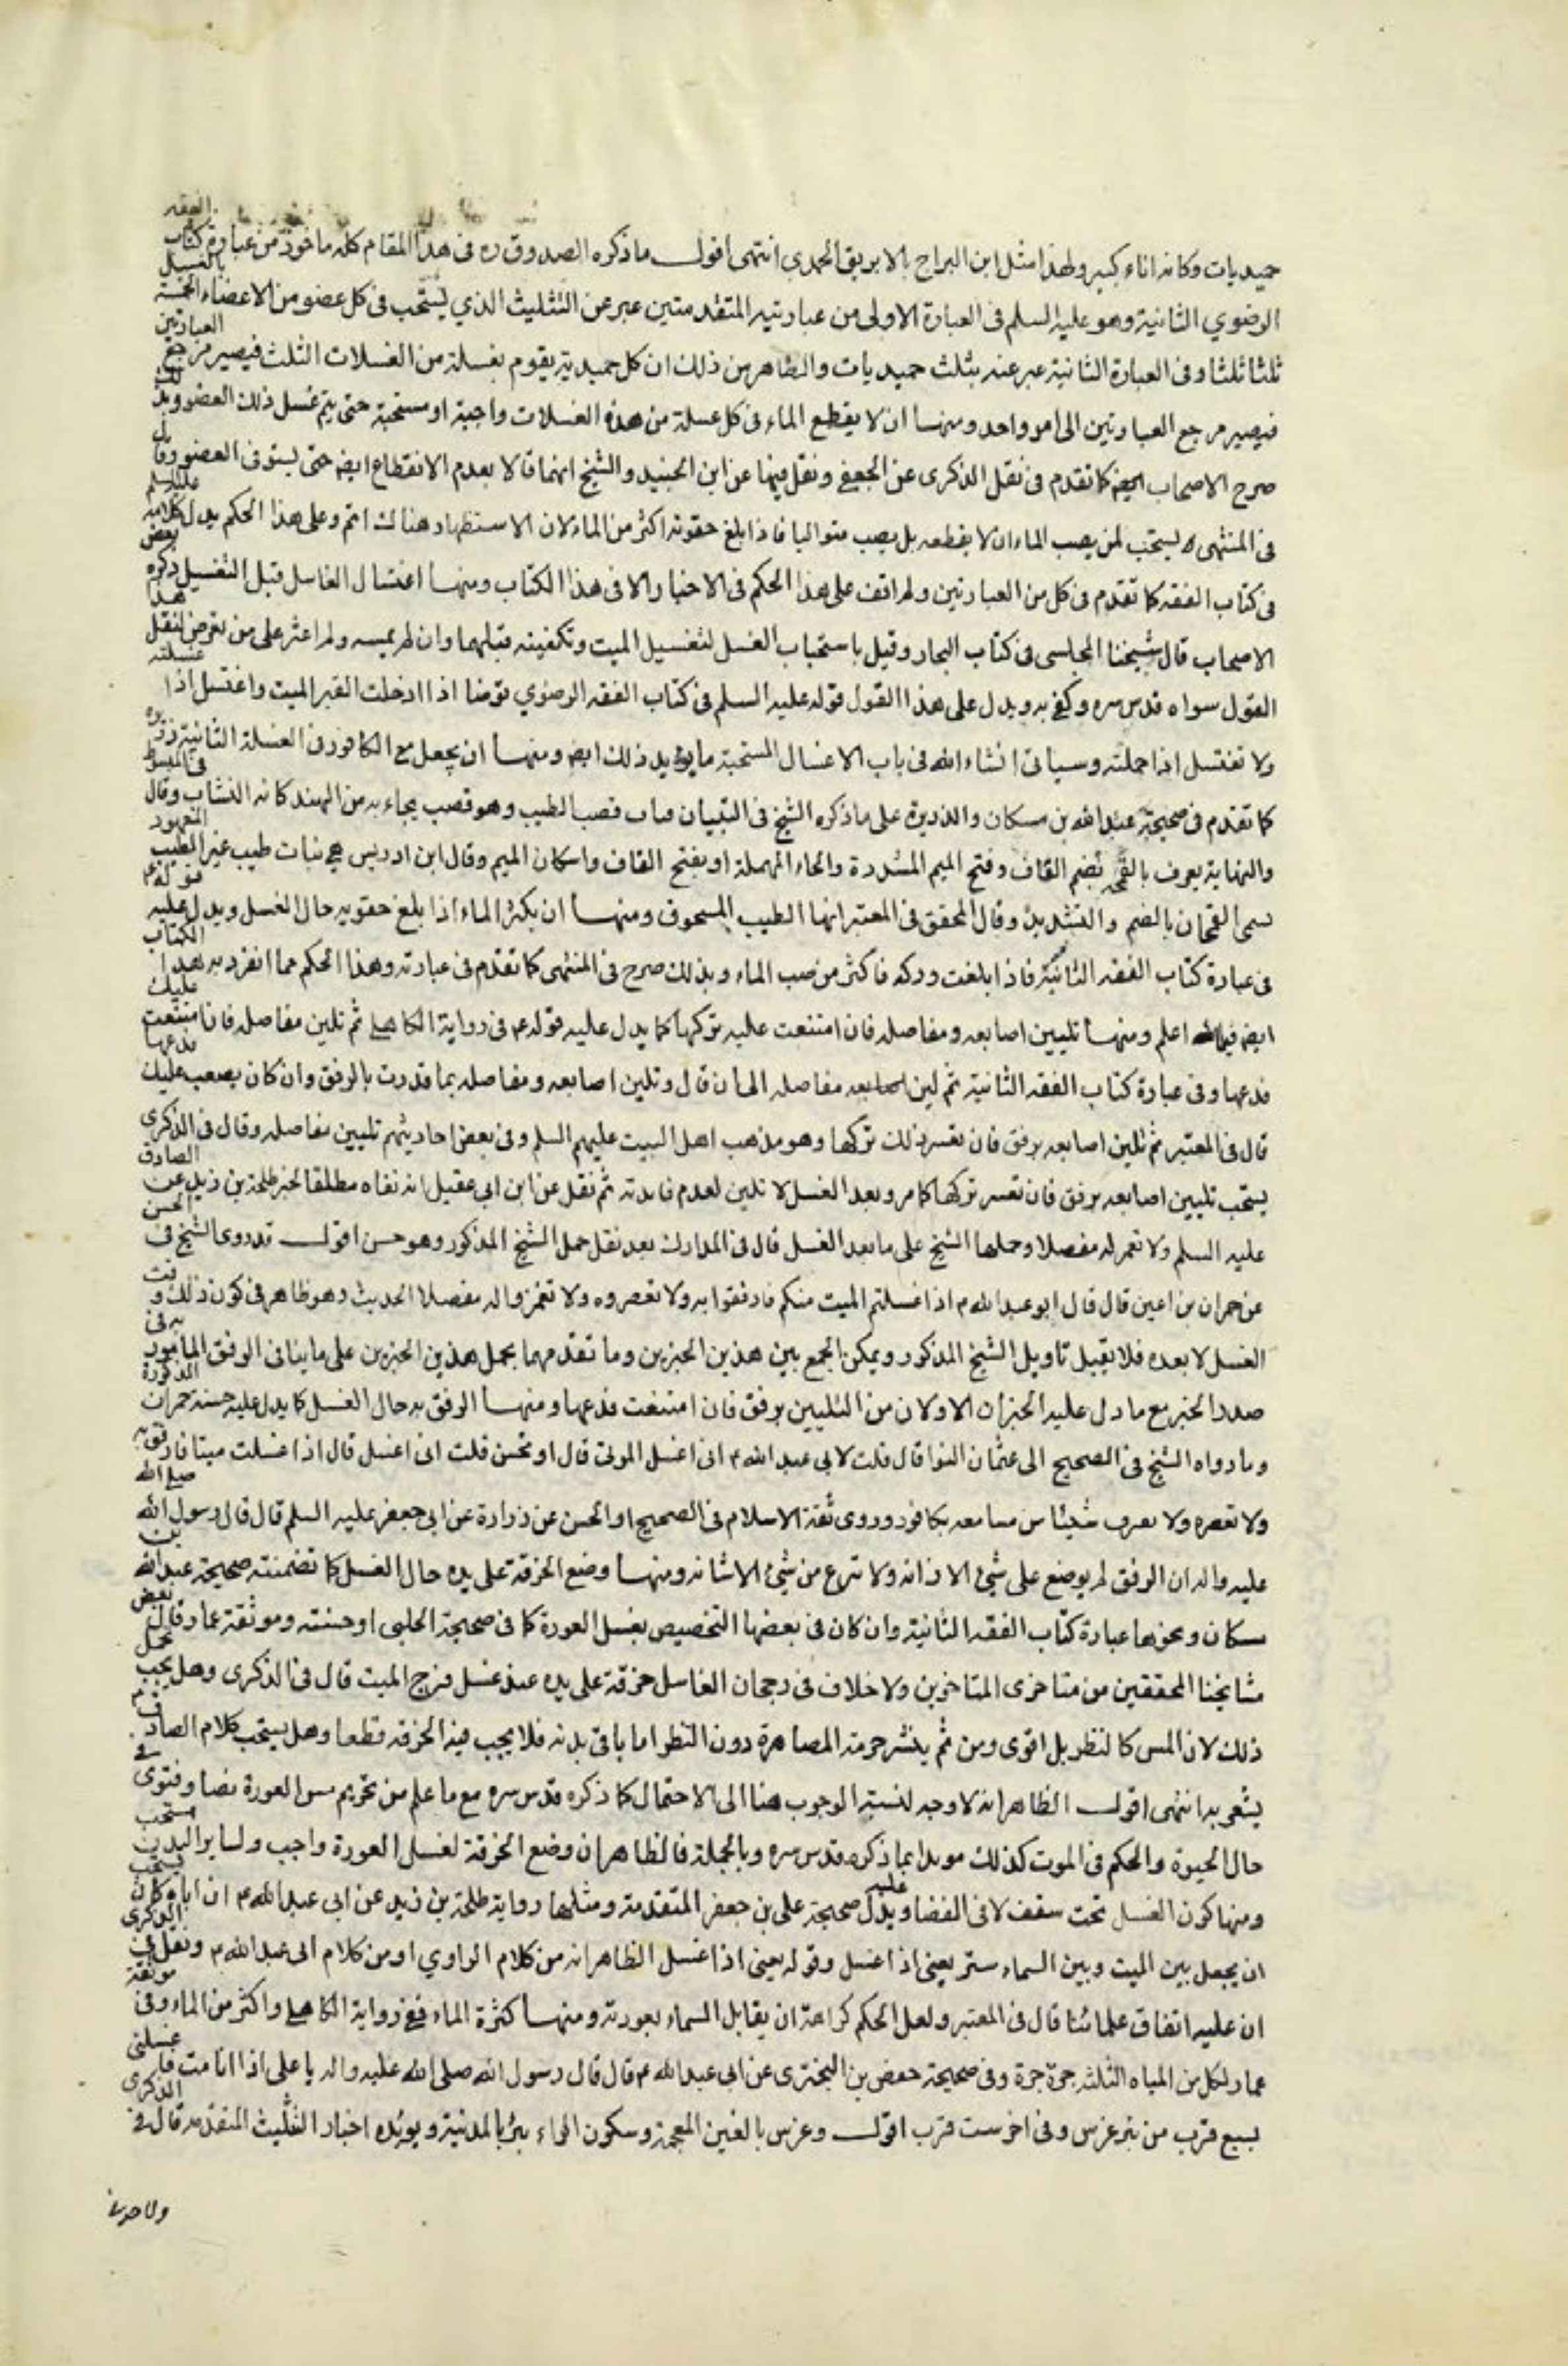 حميديات وكانه اناء كبير ولهذا مثل ابن البراج بالابريق الحمدى انتهى اقول ما ذكره الصدوق ره فى هذا المقام كله ماخوذ من عبارة كتاب الفقه
الرضوي الثانية وهو عليه السلم فى العبارة الاولى من عبارتيه المتقدمتين عبر عن التثليث الذي يستحب فى كل عضو من الاعضاء الخمسة بالغسل
ثلثا ثلثا وفى العبارة الثانية عبر عنه بثلث حميديات والظاهر من ذلك ان كل حميدية يقوم بغسلة من الغسلات الثلث فيصير مرجع العبارتين
فيصير مرجع العبارتين الى امر واحد ومنها ان لا يقطع الماء فى كل غسلة من هذه الغسلات واجبة او مستحبة حتى يتم غسل ذلك العضو وبذلك
صرح الاصحاب ايضا كما تقدم فى نقل الذكرى عن الجعفى ونقل فيها عن ابن الجنيد والشيخ انهما قالا بعدم الانقطاع ايضا حتى يستوفى العضو وقال
فى المنتهى ويستحب لمن يصب الماء ان لا يقطعه بل يصب متواليا فاذا بلغ حقوته اكثر من الماء لان الاستظهار هناك اتم وعلى هذا الحكم يدل كلامه عليه السلم
فى كتاب الفقه كما تقدم فى كل من العبارتين ولم اقف على هذا الحكم فى الاخبار الا فى هذا الكتاب ومنها اغتسال الغاسل قبل التغسيل ذكره بعض
الاصحاب قال شيخنا المجلسى فى كتاب البحار وقيل باستحباب الغسل لتغسيل الميت وتكفينه قبلهما وان لم يمسه ولم اعثر على من تعرض لنقل هذا
القول سواه قدس سره وكفى به ويدل على هذا القول قوله عليه السلم فى كتاب الفقه الرضوي توضا اذا ادخلت القبر الميت واغتسل اذا غسلته
ولا تغتسل اذا حملته وسياتى انشاء الله فى باب الاغسال المستحبة ما يؤيد ذلك ايضا ومنها ان يجعل مع الكافور فى الغسلة الثانية ذريرة
كما تقدم فى صحيحة عبد الله بن مسكان والذريرة على ما ذكره الشيخ فى التبيان فتات قصب الطيب وهو قصب يجاء به من الهند كانه النشاب وقال فى المبسوط
والنهاية يعرف بالقمحة بضم القاف وفتح الميم المشددة والحاء المهملة او بفتح القاف واسكان الميم وقال ابن ادريس هى نبات طيب غير الطيب المعهود
يسمى القمحان بالضم والتشديد وقال المحقق فى المعتبر انها الطيب المسحوق ومنها ان يكثر الماء اذا بلغ حقويه حال الغسل ويدل عليه قوله ع
فى عبارة كتاب الفقه الثانية فاذا بلغت وركه فاكثر من صب الماء وبذلك صرح فى المنتهى كما تقدم فى عبارته وهذا الحكم مما انفرد به هذا الكتاب
ايضا فيما اعلم ومنها تليين اصابعه ومفاصله فان امتنعت عليه تركها كما يدل عليه قوله ع فى رواية الكاهلى ثم تلين مفاصله فان امتنعت عليك
فدعها وفى عبارة كتاب الفقه الثانية ثم لين مفاصله الى ان قال وتلين اصابعه ومفاصله بما قدرت بالرفق وان كان يصعب عليك فدعها
قال فى المعتبر ثم تلين اصابعه برفق فان تعسر ذلك تركها وهو مذهب اهل البيت عليهم السلم وفى بعض احاديثهم تليين مفاصله وقال فى الذكرى
يستحب تليين اصابعه برفق فان تعسر تركها كما مر وبعد الغسل لا تلين لعدم فايدته ثم نقل عن ابن ابى عقيل انه نفاه مطلقا لخبر طلحة بن زيد عن الصادق
عليه السلم ولا تغمز له مفصلا وحملها الشيخ على ما بعد الغسل قال فى المدارك بعد نقل حمل الشيخ المذكور وهو حسن اقول قد روى الشيخ فى الحسن
عن حمران بن اعين قال قال ابو عبد الله ع اذا غسلتم الميت منكم فارفقوا به ولا تعصروه ولا تغمزوا له مفصلا الحديث وهو ظاهر فى كون ذلك وقت
الغسل لا بعده فلا يقبل تاويل الشيخ المذكور ويمكن الجمع بين هذين الخبرين وما تقدمهما بحمل هذين الخبرين على ما ينافى الرفق المامور به فى
صدر الخبر مع ما دل عليه الخبران الاولان من التليين برفق فان امتنعت فدعها ومنها الرفق به حال الغسل كما يدل عليه حسنة حمران المذكورة
وما رواه الشيخ فى الصحيح الى عثمان النوا قال قلت لابى عبد الله ع انى اغسل الموتى قال او تحسن قلت انى اغسل قال اذا غسلت ميتا فارفق به
ولا تعصره ولا تقرب شيئا من مسامعه بكافور وروى ثقة الاسلام فى الصحيح او الحسن عن زرارة عن ابى جعفر عليه السلم قال قال رسول الله صلى الله
عليه واله ان الرفق لم يوضع على شئ الا زانه ولا نزع من شئ الا شانه ومنها وضع الخرقة على يده حال الغسل كما تضمنته صحيحة عبد الله بن
مسكان ونحوها عبارة كتاب الفقه الثانية وان كان فى بعضها التخصيص بغسل العورة كما فى صحيحة الحلبى او حسنته وموثقة عمار وقال بعض
مشايخنا المحققين من متاخرى المتاخرين ولا خلاف فى رجحان الغاسل خرقة على يده عند غسل فرج الميت قال فى الذكرى وهل يجب
ذلك لان المس كالنظر بل اقوى ومن ثم ينشر حرمة المصاهرة دون النظر اما باقى بدنه فلا يجب فيه الخرقة قطعا وهل يستحب كلام الصادق ع
يشعر به انتهى اقول الظاهر انه لا وجه لنسبة الوجوب هنا الى الاحتمال كما ذكره قدس سره مع ما علم من تحريم مس العورة نصا وفتوى فى
حال الحيوة والحكم فى الموت كذلك مويدا بما ذكره قدس سره وبالجملة فالظاهر ان وضع الخرقة لغسل العورة واجب ولساير البدن مستحب
ومنها كون الغسل تحت سقف لا فى الفضا ويدل عليه صحيحة على بن جعفر المتقدمة ومثلها رواية طلحة بن زيد عن ابى عبد الله ع ان اباه كان يستحب
ان يجعل بين الميت وبين السماء ستر يعنى اذا غسل وقوله يعنى اذا غسل الظاهر انه من كلام الراوي او من كلام ابى عبد الله ع ونقل فى الذكرى
ان عليه اتفاق علمائنا قال فى المعتبر ولعل الحكم كراهة ان يقابل السماء بعورته ومنها كثرة الماء ففى رواية الكاهلى واكثر من الماء وفى موثقة
عمار لكل من المياه الثلثه جرة جرة وفى صحيحة حفص بن البخترى عن ابى عبد الله ع قال قال رسول الله صلى الله عليه واله يا على اذا انا مت فاغسلنى
بسبع قرب من بئر غرس وفى اخر ست قرب اقول وغرس بالغين المعجمة وسكون الراء بئر بالمدنية ويؤيده اخبار التثليث المتقدمة قال فى الذكرى